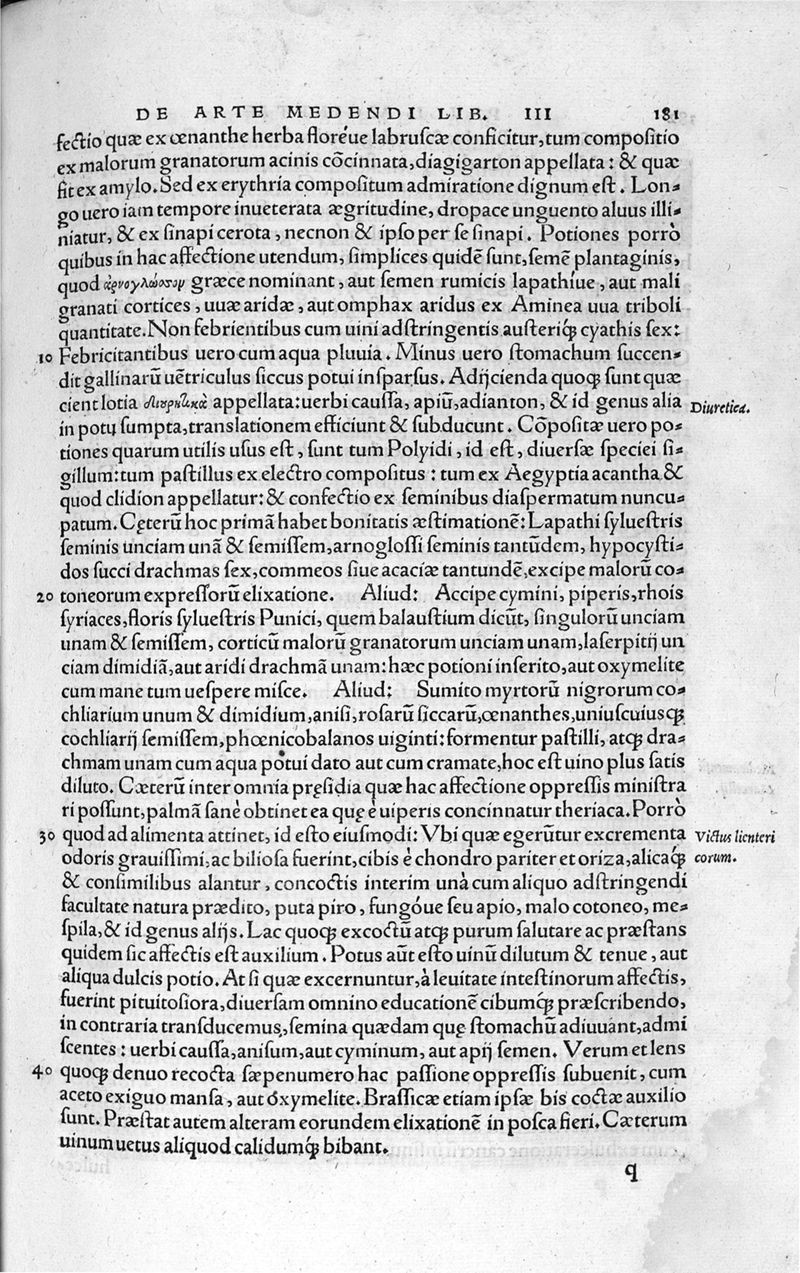 DE ARTE MEDENDI LIB. III 181
fectio quæ ex œnanthe herba floréue labruſcæ conficitur, tum compoſitio
ex malorum granatorum acinis cōcinnata, diagigarton appellata: & quæ
fit ex amylo. Sed ex erythria compoſitum admiratione dignum eſt. Lon-
go uero iam tempore inueterata ægritudine, dropace unguento aluus illi-
niatur, & ex ſinapi cerota, necnon & ipſo per ſe ſinapi. Potiones porrò
quibus in hac affectione utendum, ſimplices quidē ſunt, ſemē plantaginis,
quod ἀρνογλώοσομ græce nominant, aut ſemen rumicis lapathíue, aut mali
granati cortices, uuæ aridæ, aut omphax aridus ex Aminea uua triboli
quantitate. Non febrientibus cum uini adſtringentis auſteriq́ꝫ cyathis ſex:
10 Febricitantibus uero cum aqua pluuia. Minus uero ſtomachum ſuccen-
dit gallinarū uētriculus ſiccus potui inſparſus. Adijcienda quoqꝫ ſunt quæ
cient lotia διουρητικὰ appellata: uerbi cauſſa, apiū, adianton, & id genus alia Diuretica.
in potu ſumpta, translationem efficiunt & ſubducunt. Cōpoſitæ uero po-
tiones quarum utilis uſus eſt, ſunt tum Polyidi, id eſt, diuerſæ ſpeciei ſi-
gillum: tum paſtillus ex electro compoſitus: tum ex Aegyptia acantha &
quod clidion appellatur: & confectio ex ſeminibus diaſpermatum nuncu-
patum. Cęterū hoc primā habet bonitatis æſtimationē: Lapathi ſylueſtris
ſeminis unciam unā & ſemiſſem, arnogloſſi ſeminis tantūdem, hypocyſti-
dos ſucci drachmas ſex, commeos ſiue acaciæ tantundē, excipe malorū co-
20 toneorum expreſſorū elixatione. Aliud: Accipe cymini, piperis, rhois
ſyriaces, floris ſylueſtris Punici, quem balauſtium dicūt, ſingulorū unciam
unam & ſemiſſem, corticū malorū granatorum unciam unam, laſerpitij un
ciam dimidiā, aut aridi drachmā unam: hæc potioni inſerito, aut oxymelite
cum mane tum ueſpere miſce. Aliud: Sumito myrtorū nigrorum co-
chliarium unum & dimidium, aniſi, roſarū ſiccarū, œnanthes, uniuſcuiusqꝫ
cochliarij ſemiſſem, phœnicobalanos uiginti: formentur paſtilli, atqꝫ dra-
chmam unam cum aqua potui dato aut cum cramate, hoc eſt uino plus ſatis
diluto. Cæterū inter omnia pręſidia quæ hac affectione oppreſſis miniſtra
ri poſſunt, palmā ſanè obtinet ea quę è uiperis concinnatur theriaca. Porrò
30 quod ad alimenta attinet, id eſto eiuſmodi: Vbi quæ egerūtur excrementa Victus lienteri
odoris grauiſſimi, ac bilioſa fuerint, cibis è chondro pariter et oriza, alicaq́ꝫ corum.
& conſimilibus alantur, concoctis interim unà cum aliquo adſtringendi
facultate natura prædito, puta piro, fungóue ſeu apio, malo cotoneo, me-
ſpila, & id genus alijs. Lac quoqꝫ excoctū atqꝫ purum ſalutare ac præſtans
quidem ſic affectis eſt auxilium. Potus aūt eſto uinū dilutum & tenue, aut
aliqua dulcis potio. At ſi quæ excernuntur, à leuitate inteſtinorum affectis,
fuerint pituitoſiora, diuerſam omnino educationē cibumq́ꝫ præſcribendo,
in contraria transducemus, ſemina quædam quę ſtomachū adiuuant, admi
ſcentes: uerbi cauſſa, aniſum, aut cyminum, aut apij ſemen. Verum et lens
40 quoqꝫ denuo recocta ſæpenumero hac paſſione oppreſſis ſubuenit, cum
aceto exiguo manſa, aut óxymelite. Braſſicæ etiam ipſæ bis coctæ auxilio
ſunt. Præſtat autem alteram eorundem elixationē in poſca fieri. Cæterum
uinum uetus aliquod calidumq́ꝫ bibant.
q